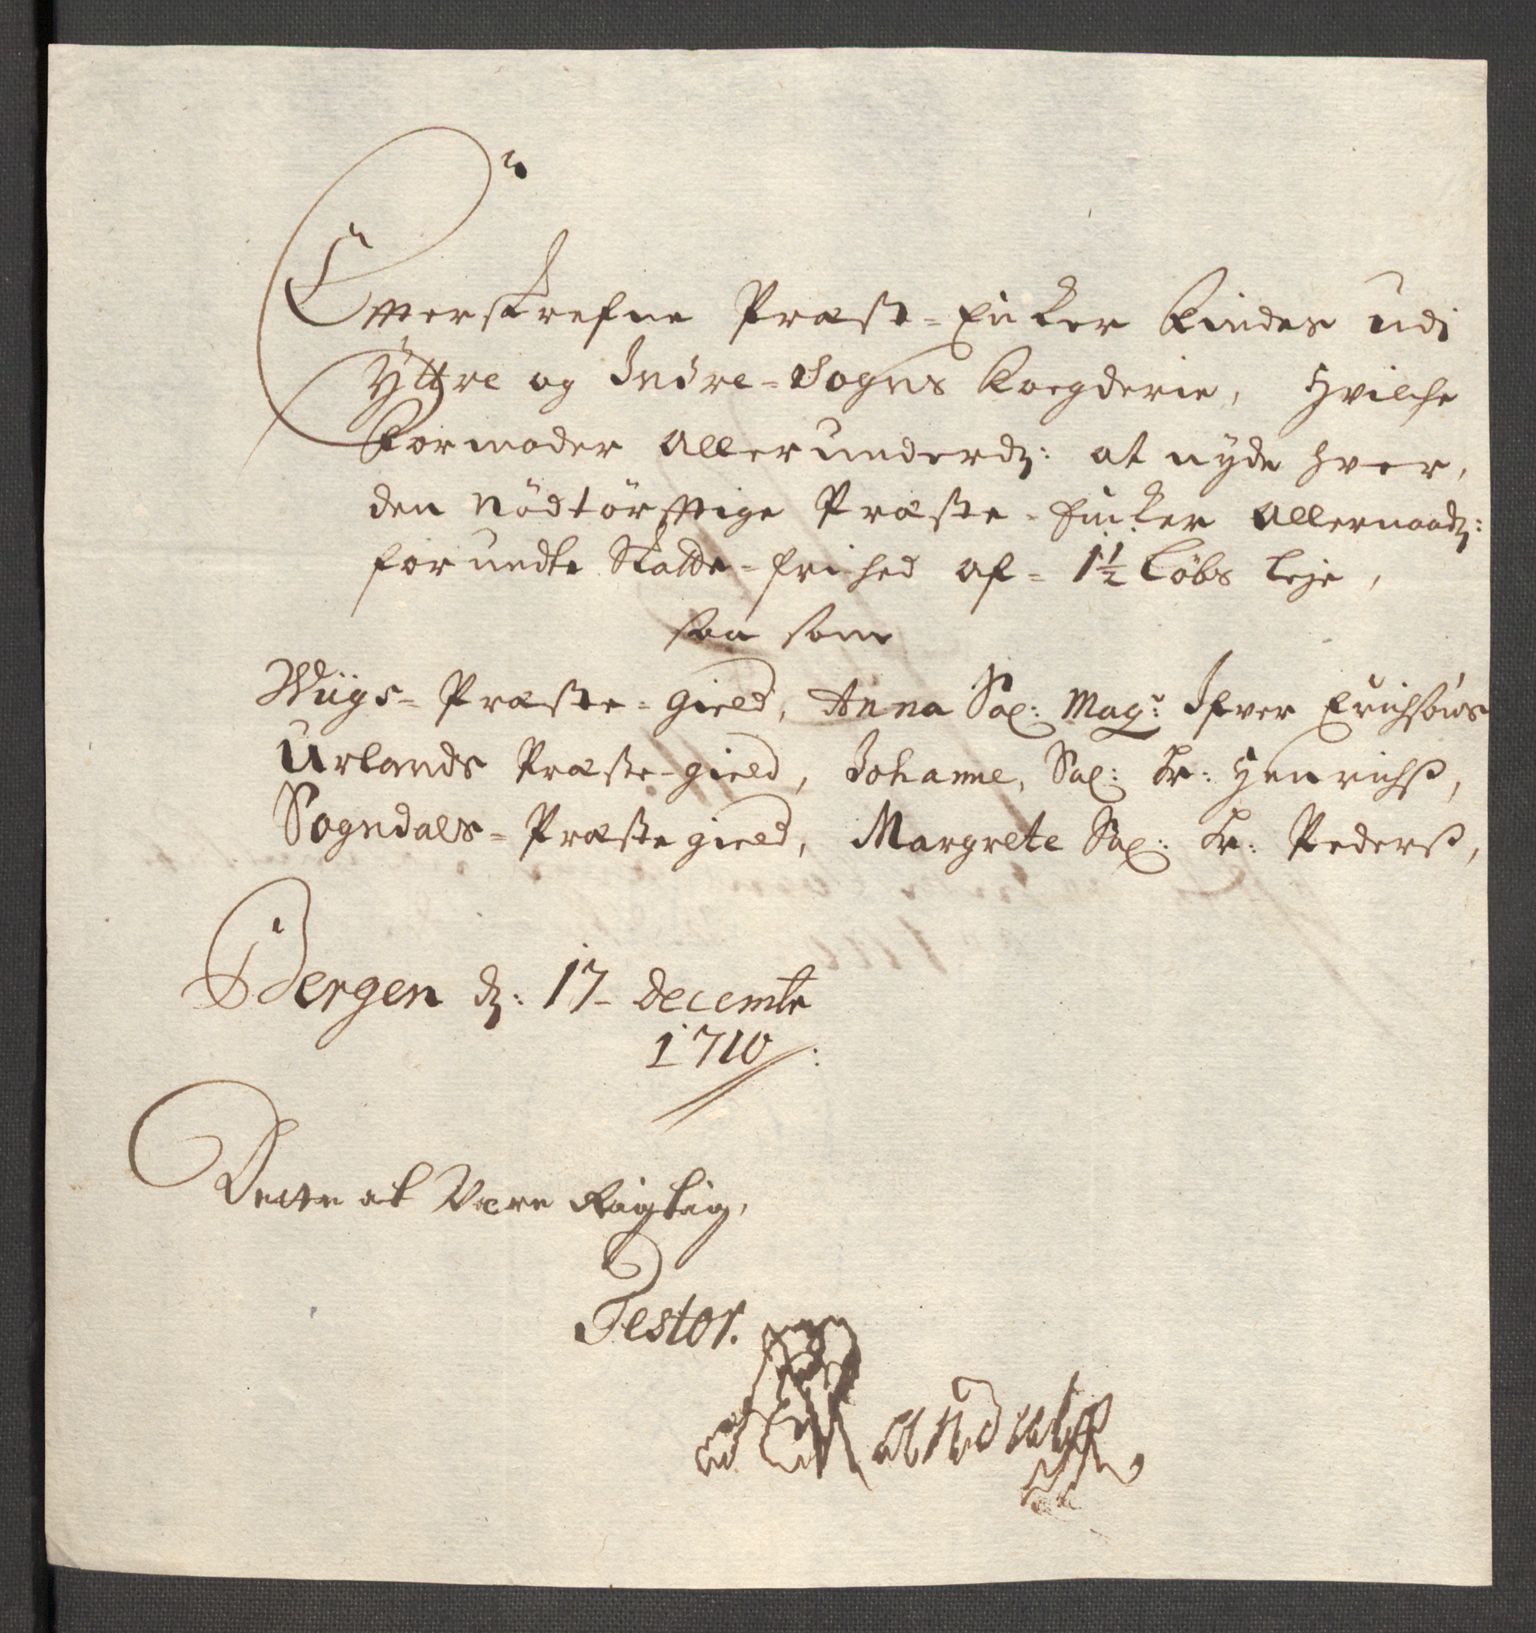 Efterskrefne Præst-Encker findes udi
Yttre og Indre-Sogns Foegderie, hvilche
formoder allerunderdt: at nyde hver,
den nödtörfftige Præste-Encker allernaadt:
forundte Skatte-frihed af = 1½ Löbs Leje,
saa som
Wiigs-Præste-gield, Anna Sal: Mag: Ifver Erichsöns
Urlands Præste-gield, Johanne, Sal: Hr: Henrichß,
Sogndals-Præstegield, Margrete Sal: Hr: Pederß,
Bergen d: 17 - decembr
1710 :
Dette at Være Rigtig,
Testor.
Randulff